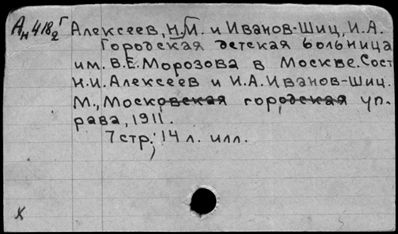 Ан 418/2 Г Алексеев, Н.И. и Иванов-Шиц, И.А.
Городская детская больница
им. В.Е. Морозова в Москве. Сост
Н.И. Алексеев и И.А. Иванов-Шиц.
М., Московская городская уп-
рава, 1911.
7 стр; 14 л. илл.
х